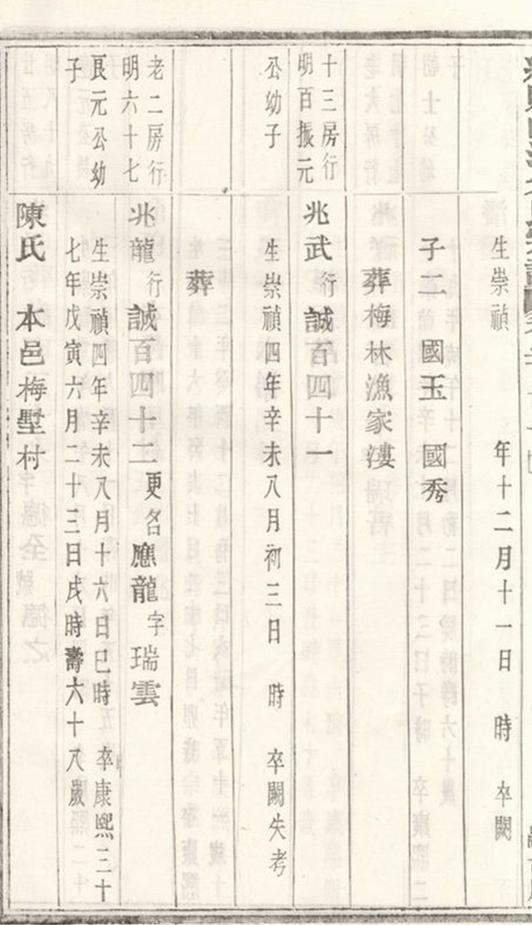 生崇禎 年十二月十一日 時 卒闕
子二 國玉 國秀
葬梅林漁家漊
十三房行
明百振元
公幼子
兆武行誠百四十一
生崇禎四年辛未八月初三日 時 卒闕失考
葬
老二房行
明六十七
長元公幼
子
兆龍行誠百四十二更名應龍字瑞雲
生崇禎四年辛未八月十六日巳時 卒康熙三十
七年戊寅六月二十三日戌時壽六十八歲
陳氏 本邑梅墅村